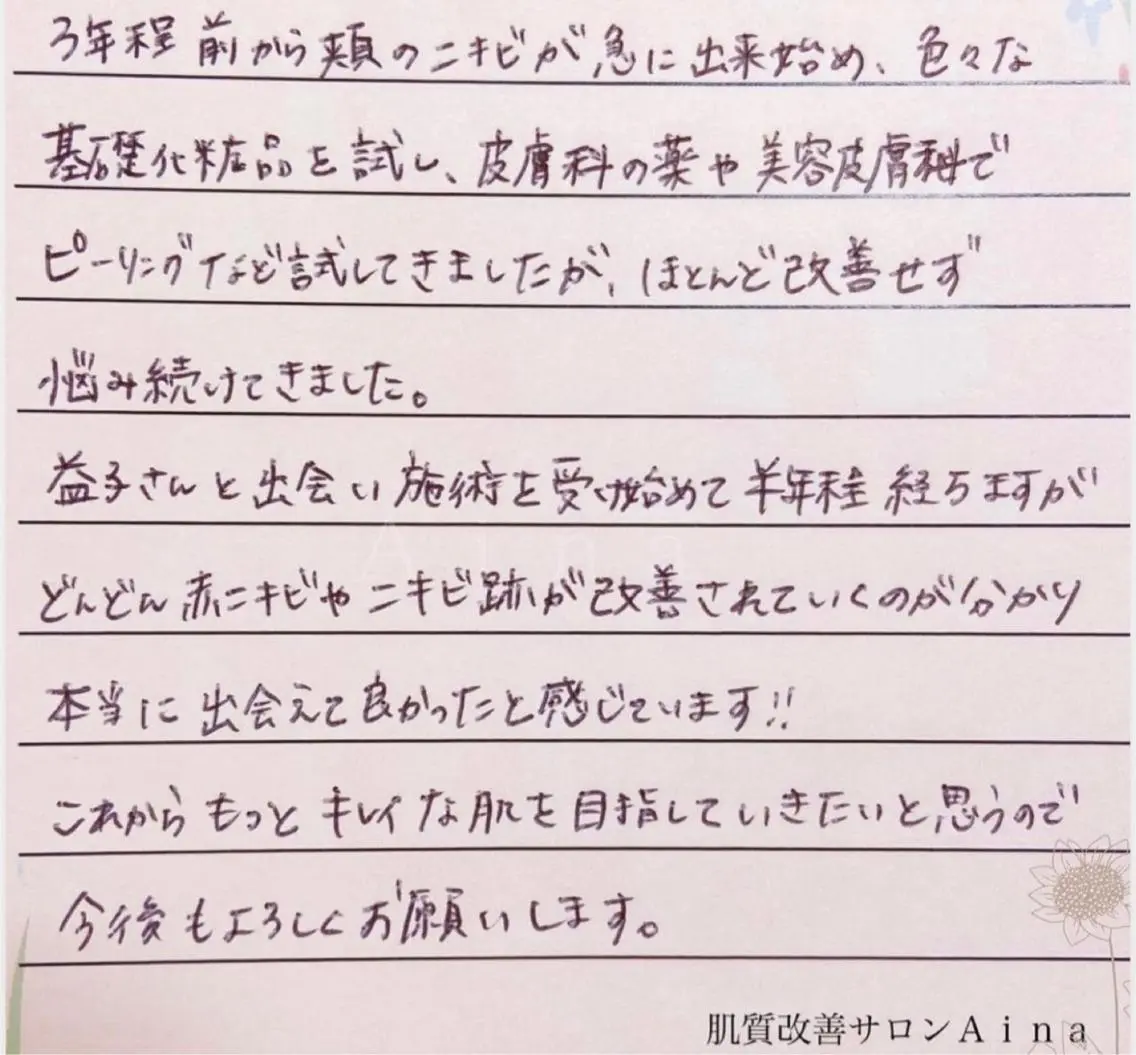 3年程前から頬のニキビが急に出来始め、色々な
基礎化粧品を試し、皮膚科の薬や美容皮膚科で
ピーリングなど試してきましたが、ほとんど改善せず
悩み続けてきました。
益子さんと出会い施術を受け始めて半年程経ちますが
どんどん赤ニキビやニキビ跡が改善されていくのが分かり
本当に出会えて良かったと感じています!!
これからもっとキレイな肌を目指していきたいと思うので
今後もよろしくお願いします。
Aina
肌質改善サロンAina